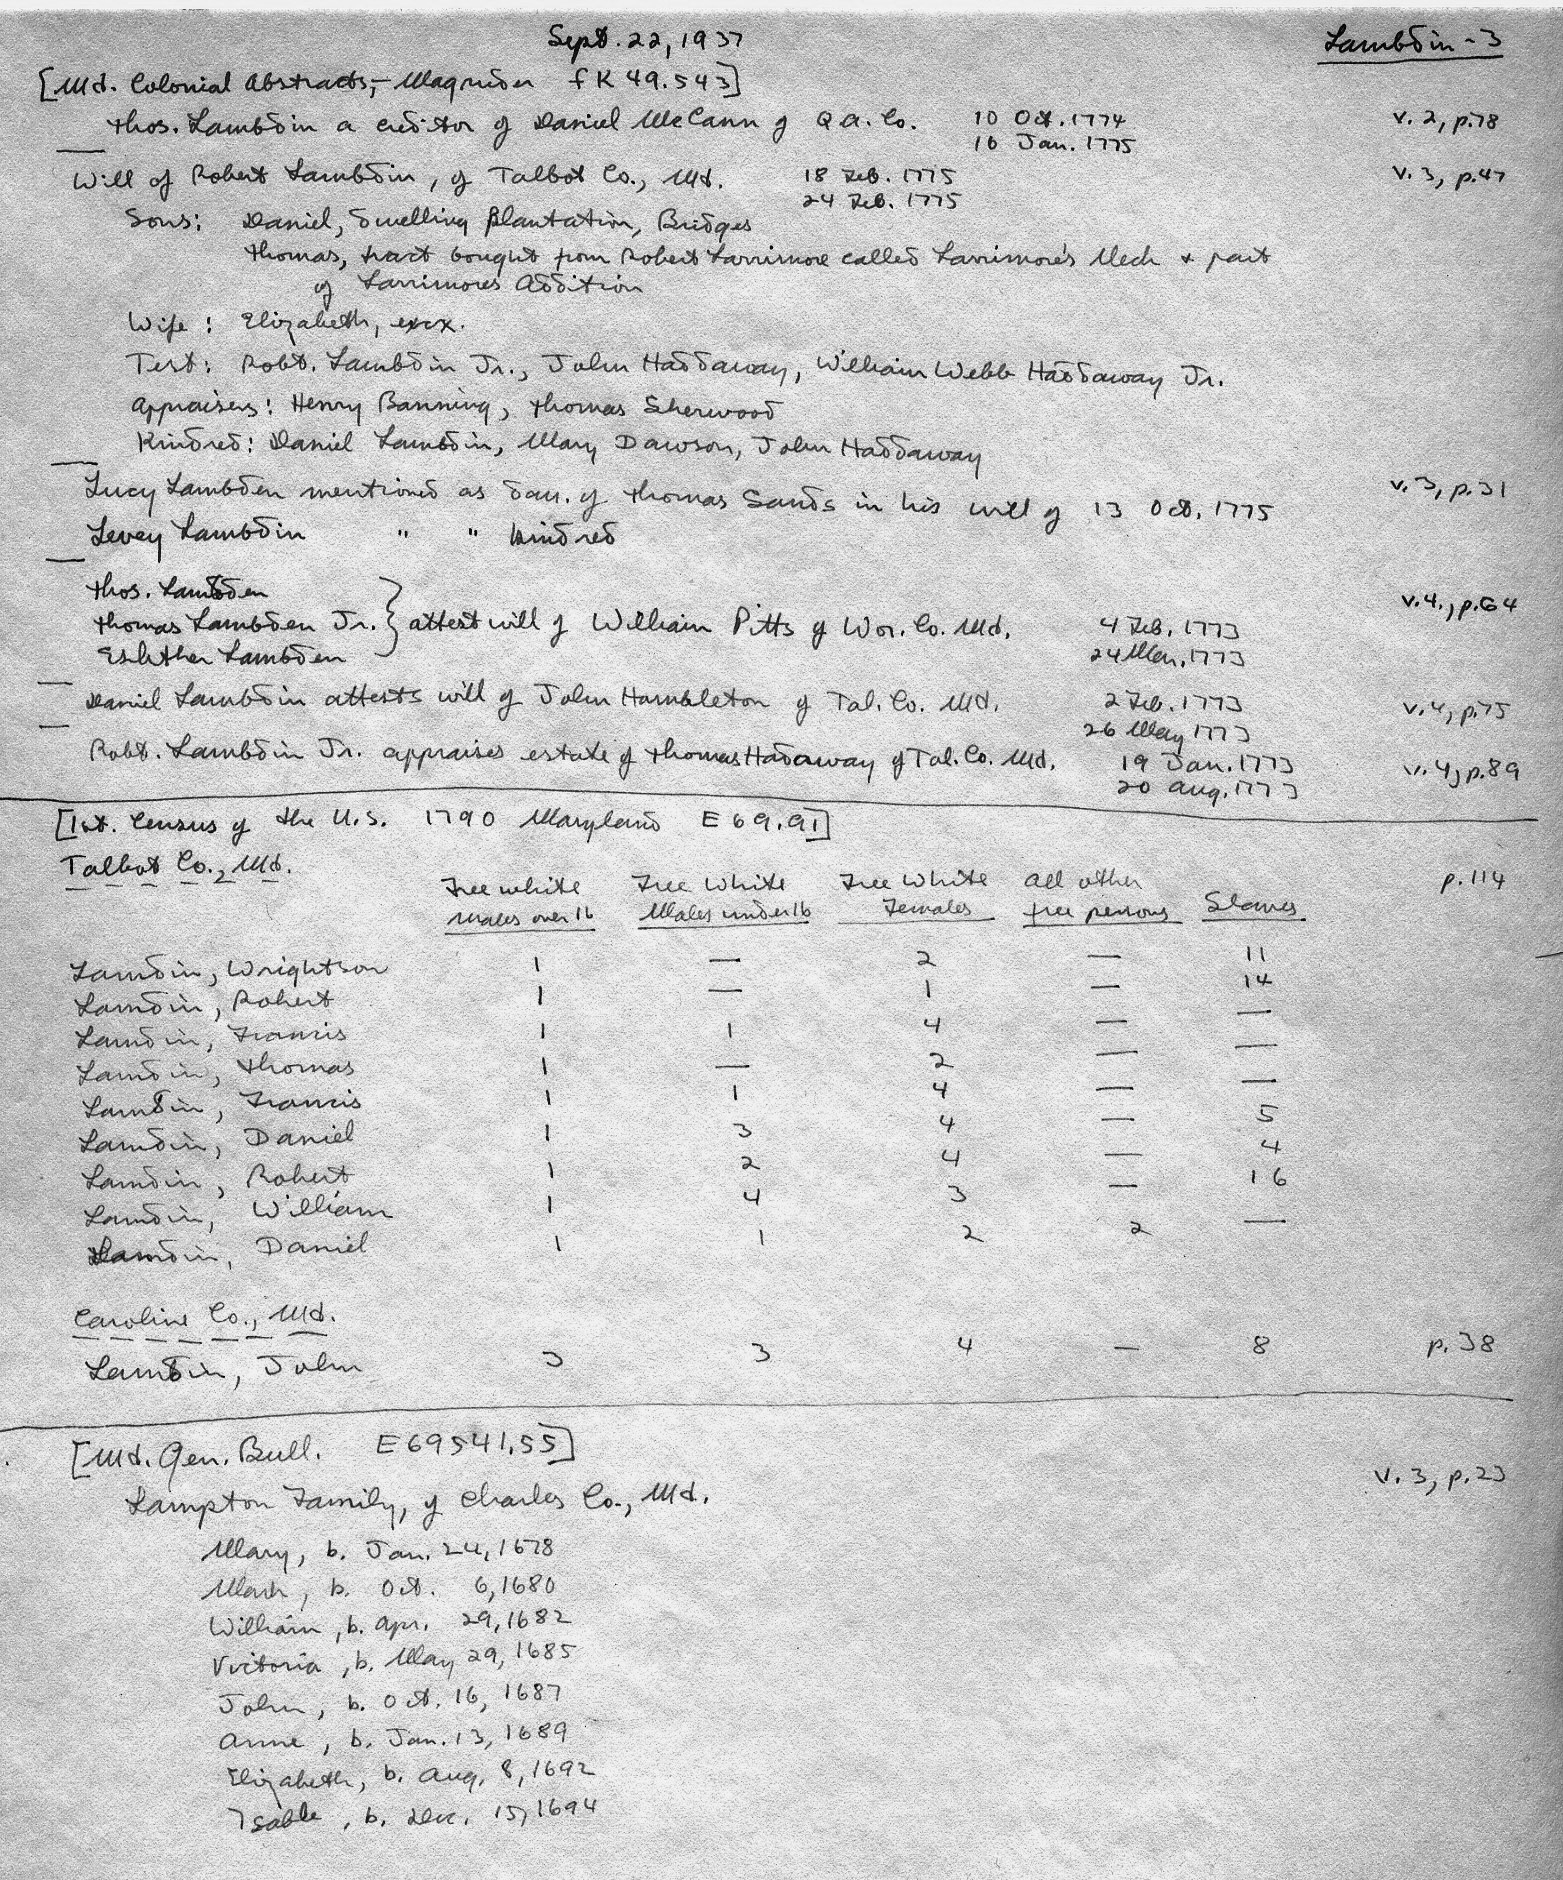 Sept. 22, 1937
Lambdin-3
[Md. Colonial Abstracts,- Magruder fK 49.543]
Thos. Lambdin a creditor of Daniel McCann of Q.A. Co. 10 Oct. 1774 v. 2, p.78
16 Jan. 1775
Will of Robert Lambdin, of Talbot Co., Md. 18 Feb. 1775 v. 3, p.47
24 Feb. 1775
Sons: Daniel, dwelling plantation, Bridges
Thomas, tract bought from Robert Larrimore called Larrimore's Neck + part
of Larrimores Addition
Wife: Elizabeth, exrx.
Test: Robt. Lambdin Jr., John Haddaway, William Webb Haddaway Jr.
Appraisers: Henry Banning, Thomas Sherwood
Kindred: Daniel Lambdin, Mary Dawson, John Haddaway
Lucy Lambden mentioned as dau. of Thomas Sands in his will of 13 Oct, 1775 v. 3, p.31
Levey Lambdin " " kindred
Thos. Lambden
Thomas Lambden Jr. } attest will of William Pitts of Wor. Co. Md. 4 Feb. 1773 v.4., p.64
Eshther Lambden 24 Mar. 1773
Daniel Lambdin attests will of John Hambleton of Tal. Co. Md. 2 Feb. 1773 v.4, p.75
26 May 1773
Robt. Lambdin Jr. appraises estate of Thomas Hadaway of Tal. Co. Md. 19 Jan. 1773 v.4, p.89
20 Aug. 1773
[1st. Census of the U.S. 1790 Maryland E69.91]
Talbot Co., Md. p.114
Free white Free White Free White All other
Males over 16 Males under 16 Females free persons Slaves
Lamdin, Wrightson 1 — 2 — 11
Lamdin, Robert 1 — 1 — 14
Lamdin, Francis 1 1 4 — —
Lamdin, Thomas 1 — 2 — —
Lamdin, Francis 1 1 4 — —
Lamdin, Daniel 1 3 4 — 5
Lamdin, Robert 1 2 4 — 4
Lamdin, William 1 4 3 — 16
Lamdin, Daniel 1 1 2 2 —
Caroline Co., Md.
Lambdin, John 3 3 4 — 8 p. 38
[Md. Gen. Bull. E69541.55]
v. 3, p.23
Lampton Family, of Charles Co., Md.
Mary, b. Jan. 24, 1678
Mark, b. Oct. 6, 1680
William, b. Apr. 29, 1682
Victoria, b. May 29, 1685
John, b. Oct. 16, 1687
Anne, b. Jan. 13, 1689
Elizabeth, b. Aug. 8, 1692
Isable, b. Dec. 15, 1694